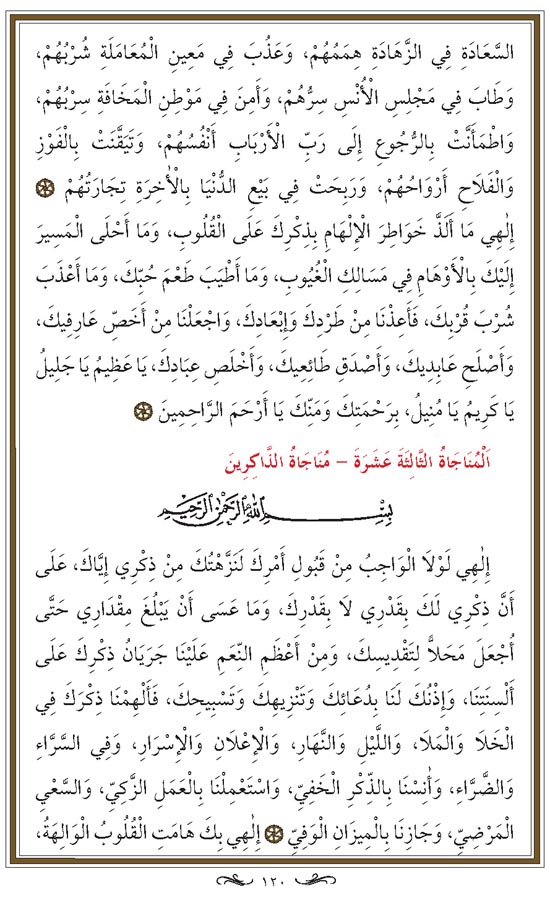 السَّعَادَةِ فِي الزَّهَادَةِ هِمَمُهُمْ، وَعَذُبَ فِي مَعِينِ الْمُعَامَلَةِ شُرْبُهُمْ،
وَطَابَ فِي مَجْلِسِ الْأُنْسِ سِرُّهُمْ، وَأَمِنَ فِي مَوْطِنِ الْمَخَافَةِ سِرْبُهُمْ،
وَاطْمَأَنَّتْ بِالرُّجُوعِ إِلَى رَبِّ الْأَرْبَابِ أَنْفُسُهُمْ، وَتَيَقَّنَتْ بِالْفَوْزِ
وَالْفَلَاحِ أَرْوَاحُهُمْ، وَرَبِحَتْ فِي بَيْعِ الدُّنْيَا بِالْأٰخِرَةِ تِجَارَتُهُمْ
إِلٰهِي مَا أَلَذَّ خَوَاطِرَ الْإِلْهَامِ بِذِكْرِكَ عَلَى الْقُلُوبِ، وَمَا أَحْلَى الْمَسِيرَ
إِلَيْكَ بِالْأَوْهَامِ فِي مَسَالِكِ الْغُيُوبِ، وَمَا أَطْيَبَ طَعْمَ حُبِّكَ، وَمَا أَعْذَبَ
شُرْبَ قُرْبِكَ، فَأَعِذْنَا مِنْ طَرْدِكَ وَإِبْعَادِكَ، وَاجْعَلْنَا مِنْ أَخَصِّ عَارِفِيكَ،
وَأَصْلَحِ عَابِدِيكَ، وَأَصْدَقِ طَائِعِيكَ، وَأَخْلَصِ عِبَادِكَ، يَا عَظِيمُ يَا جَلِيلُ
يَا كَرِيمُ يَا مُنِيلُ، بِرَحْمَتِكَ وَمَنِّكَ يَا أَرْحَمَ الرَّاحِمِينَ
اَلْمُنَاجَاةُ الثَّالِثَةَ عَشَرَةَ – مُنَاجَاةُ الذَّاكِرِينَ
بِسْمِ اللّٰهِ الرَّحْمٰنِ الرَّحِيمِ
إِلٰهِي لَوْلَا الْوَاجِبُ مِنْ قَبُولِ أَمْرِكَ لَنَزَّهْتُكَ مِنْ ذِكْرِي إِيَّاكَ، عَلَى
أَنَّ ذِكْرِي لَكَ بِقَدْرِي لَا بِقَدْرِكَ، وَمَا عَسَى أَنْ يَبْلُغَ مِقْدَارِي حَتَّى
أُجْعَلَ مَحَلاًّ لِتَقْدِيسِكَ، وَمِنْ أَعْظَمِ النِّعَمِ عَلَيْنَا جَرَيَانُ ذِكْرِكَ عَلَى
أَلْسِنَتِنَا، وَإِذْنُكَ لَنَا بِدُعَائِكَ وَتَنْزِيهِكَ وَتَسْبِيحِكَ، فَأَلْهِمْنَا ذِكْرَكَ فِي
الْخَلَا وَالْمَلَا، وَاللَّيْلِ وَالنَّهَارِ، وَالْإِعْلَانِ وَالْإِسْرَارِ، وَفِي السَّرَّاءِ
وَالضَّرَّاءِ، وَأٰنِسْنَا بِالذِّكْرِ الْخَفِيِّ، وَاسْتَعْمِلْنَا بِالْعَمَلِ الزَّكِيِّ، وَالسَّعْيِ
الْمَرْضِيِّ، وَجَازِنَا بِالْمِيزَانِ الْوَفِيِّ إِلٰهِي بِكَ هَامَتِ الْقُلُوبُ الْوَالِهَةُ،
١٢٠